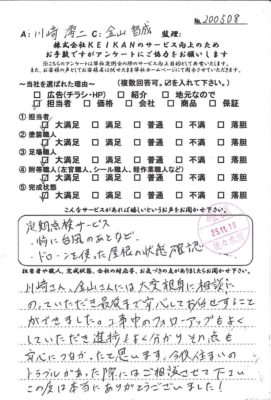 No. 200508
A: 川崎 澪二 C: 金山 智成 監理:
株式会社KEIKANのサービス向上のため
お手数ですがアンケートにご協力をお願いします
～当社を選ばれた理由～ (複数回答可。☑を入れて下さい。)
□ 広告(チラシ・HP) □ 紹介 □ 地元なので
□ 担当者 □ 価格 □ 会社 □ 商品 □ 保証
① 担当者
□ 大満足 □ 満足 □ 普通 □ 不満 □ 落胆
② 塗装職人
□ 大満足 □ 満足 □ 普通 □ 不満 □ 落胆
③ 足場職人
□ 大満足 □ 満足 □ 普通 □ 不満 □ 落胆
④ 附帯職人(左官職人、シール職人、軽作業職人など)
□ 大満足 □ 満足 □ 普通 □ 不満 □ 落胆
⑤ 完成状態
□ 大満足 □ 満足 □ 普通 □ 不満 □ 落胆
こんなサービスがあれば嬉しいというお声をお聞かせ下さい。
定期点検サービス
・特に台風のあとなど、
ドローンを使った屋根の状態確認
25.11.10
佐々木
担当者や職人、完成状態、会社の対応等、お気づきの点がありましたらお聞かせ下さい
川崎さん、金山さんには大変親身に相談に
のっていただき最後まで安心してお任せすること
ができました。工事中のフォローアップもよく
していただき進捗もよく分かりその点も
安心につながったと思います。今後住まいの
トラブルがあった際にはご相談させて下さい
この度は本当にありがとうございました!